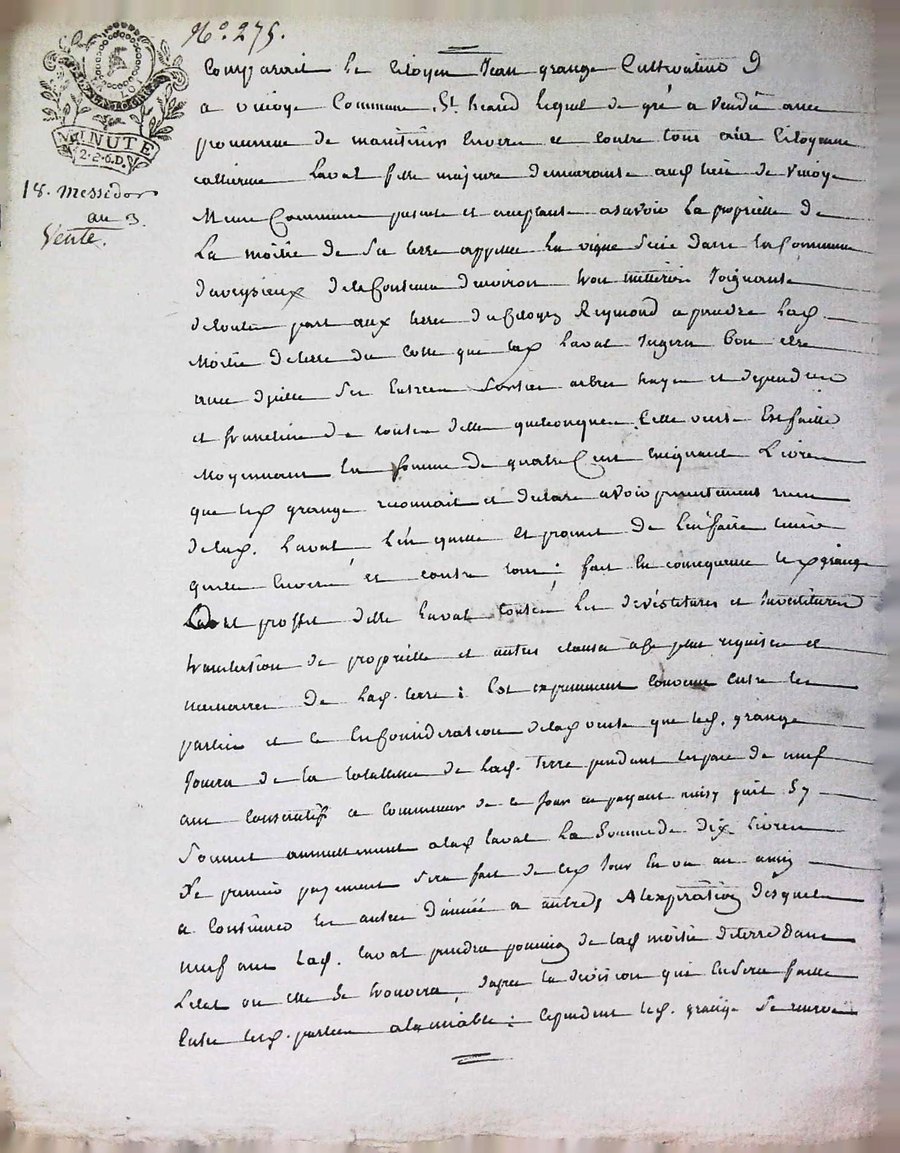 N.o 275.
MINUTE
2.S.6.D.
18. Messidor
an 3
Vente.
Comparait le Citoyen Jean grange Cultivateur
a Commune St heand lequel de gré a Vendu avec
promesse de maintenir Envers et Contre tous aux Citoyenne
catherine Laval fille majeure demeurante audt lieu de
Meme Commune presente et acceptante asavoir La propriette de
La moitié de Sa terre appellee La vigne Scize dans La Commune
daveysieux de la Contenue denviron trois Joignante
de toutes part aux terres du Citoyen Reymond a prendre Lad.
Moitié de terre du Cotté que lad Laval Jugera bon etre
avec Ses Entrées Sorties arbres hayes et dependces
et franche de toutes dettes quelconques. Cette vente Est faitte
Moyennant La Somme de quatre Cent Cinquante Livres
que led grange reconnait et declare avoir presentement recu
de lad. Laval L'en quitte Et promet de L'en faire tenir
quitte Envers et contre tous; fait En consequence led grange
au proffit delle Laval toutes Les devestitures et Investitures
translation de propriette et autres clauses a ce plus requises et
necessaires de Lad. terre: Est expressement convenu Entre les
parties et ce En Consideration de lad vente que led. grange
Jouira de la totallitée de Lad. Terre pendant lespace de neuf
ans Consecutifs a Commencer de ce Jour en payant ainsy quil Sy
Soumet annuellement a lad Laval La Somme de dix Livres
Le premier payement Sera fait de ced Jour En un an
a Continuer les autres d'année a autre, A lexpiration desquels
neuf ans Lad. Laval prendra possession de lad moitié de terre dans
Letat ou elle Se trouvera, dapres la division qui En Sera faitte
Entre lesd. parties alamiable: Cependant led. grange Se reserve